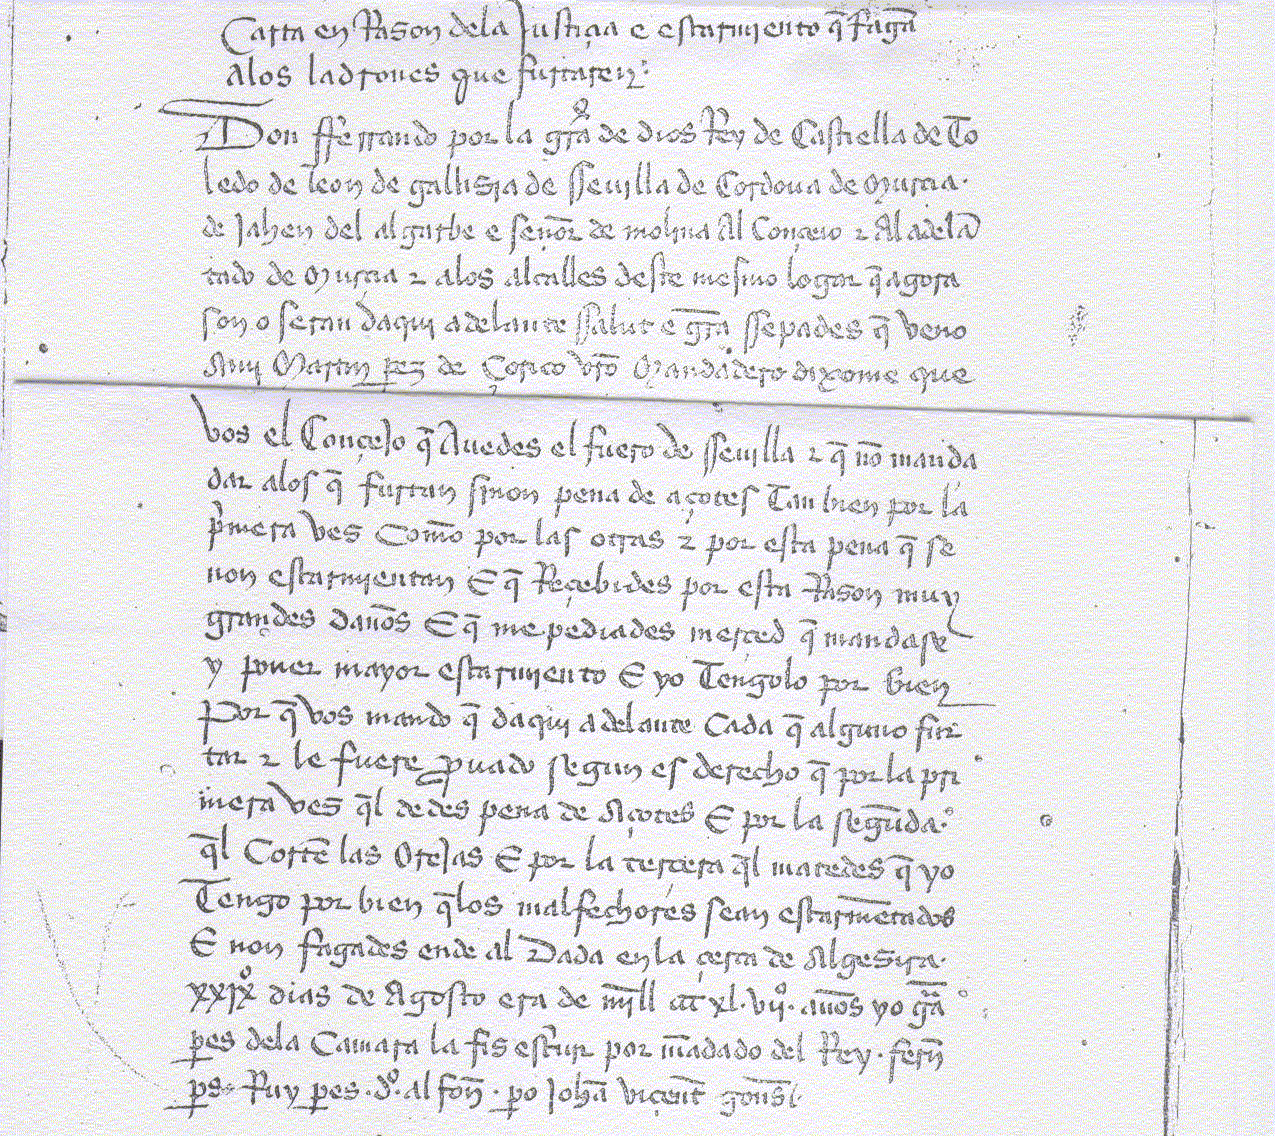 Carta en Rason dela Justiçia e escarmiento q̃ fagã
alos ladrones que furtaren
Don fferrando por la grã de dios Rey de Castiella de To
ledo de leon de gallisia de sseuilla de Cordoua de murcia
de Jahen del algarbe e señor de molina Al Conçeio τ Al adelã
tado de murcia τ alos alcalles deste mesmo logar q̃ agora
son o seran daqui adelante ssalut e grã ssepades q̃ veno
Ami Martin perez de vr̃o Mandadero dixome que
vos el Conçejo q̃ Auedes el fuero de sseuilla τ q̃ nõ manda
dar alos q̃ furtan sinon pena de açotes Tan bien por la
p̃mera ves Comõ por las otras τ por esta pena q̃ se
non escarmientan E q̃ Reçebides por esta Rason muy
grandes dan̄os E q̃ me pediades merçed q̃ mandase
y poner mayor escarmiento E yo Tengolo por bien
Por q̃ vos mando q̃ daqui adelante Cada q̃ alguno fur
tar τ le fuere prouado segun es derecho q̃ por la pri
mera ves q̃l dedes pena de Açotes E por la segũda
q̃l Cortẽ las Orejas E por la terçera q̃l matedes q̃ yo
Tengo por bien q̃los malfechores sean escarmẽtados
E non fagades ende al Dada en la çerca de Algesira
xxixº dias de Agosto era de mill τ xl vijº an̄os yo gr̃a
peres dela Camara la fis escriuir por mãdado del Rey ferñ
ps Ruy peres dº alfoñ po Johã viçent gons